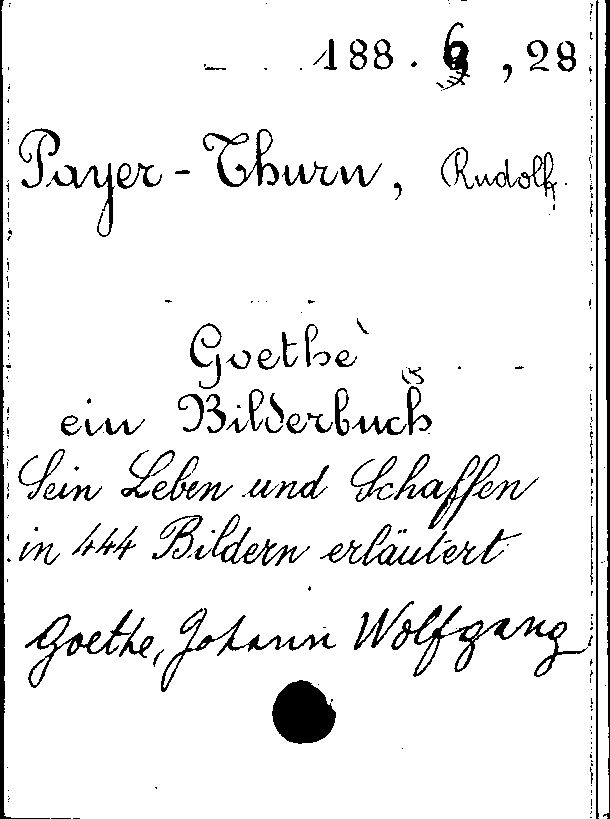 188.6,28
Payer-Thurn, Rudolf.
Goethe
ein Bilderbuch
Sein Leben und Schaffen
in 444 Bildern erläutert
Goethe, Johann Wolfgang